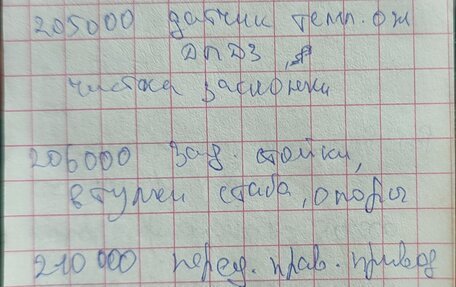 205000 датчик темп. ож
ДПДЗ,
чистка заслонки
206000 зад. стойки,
втулки стаба, опоры
210000 перед. прав. привод